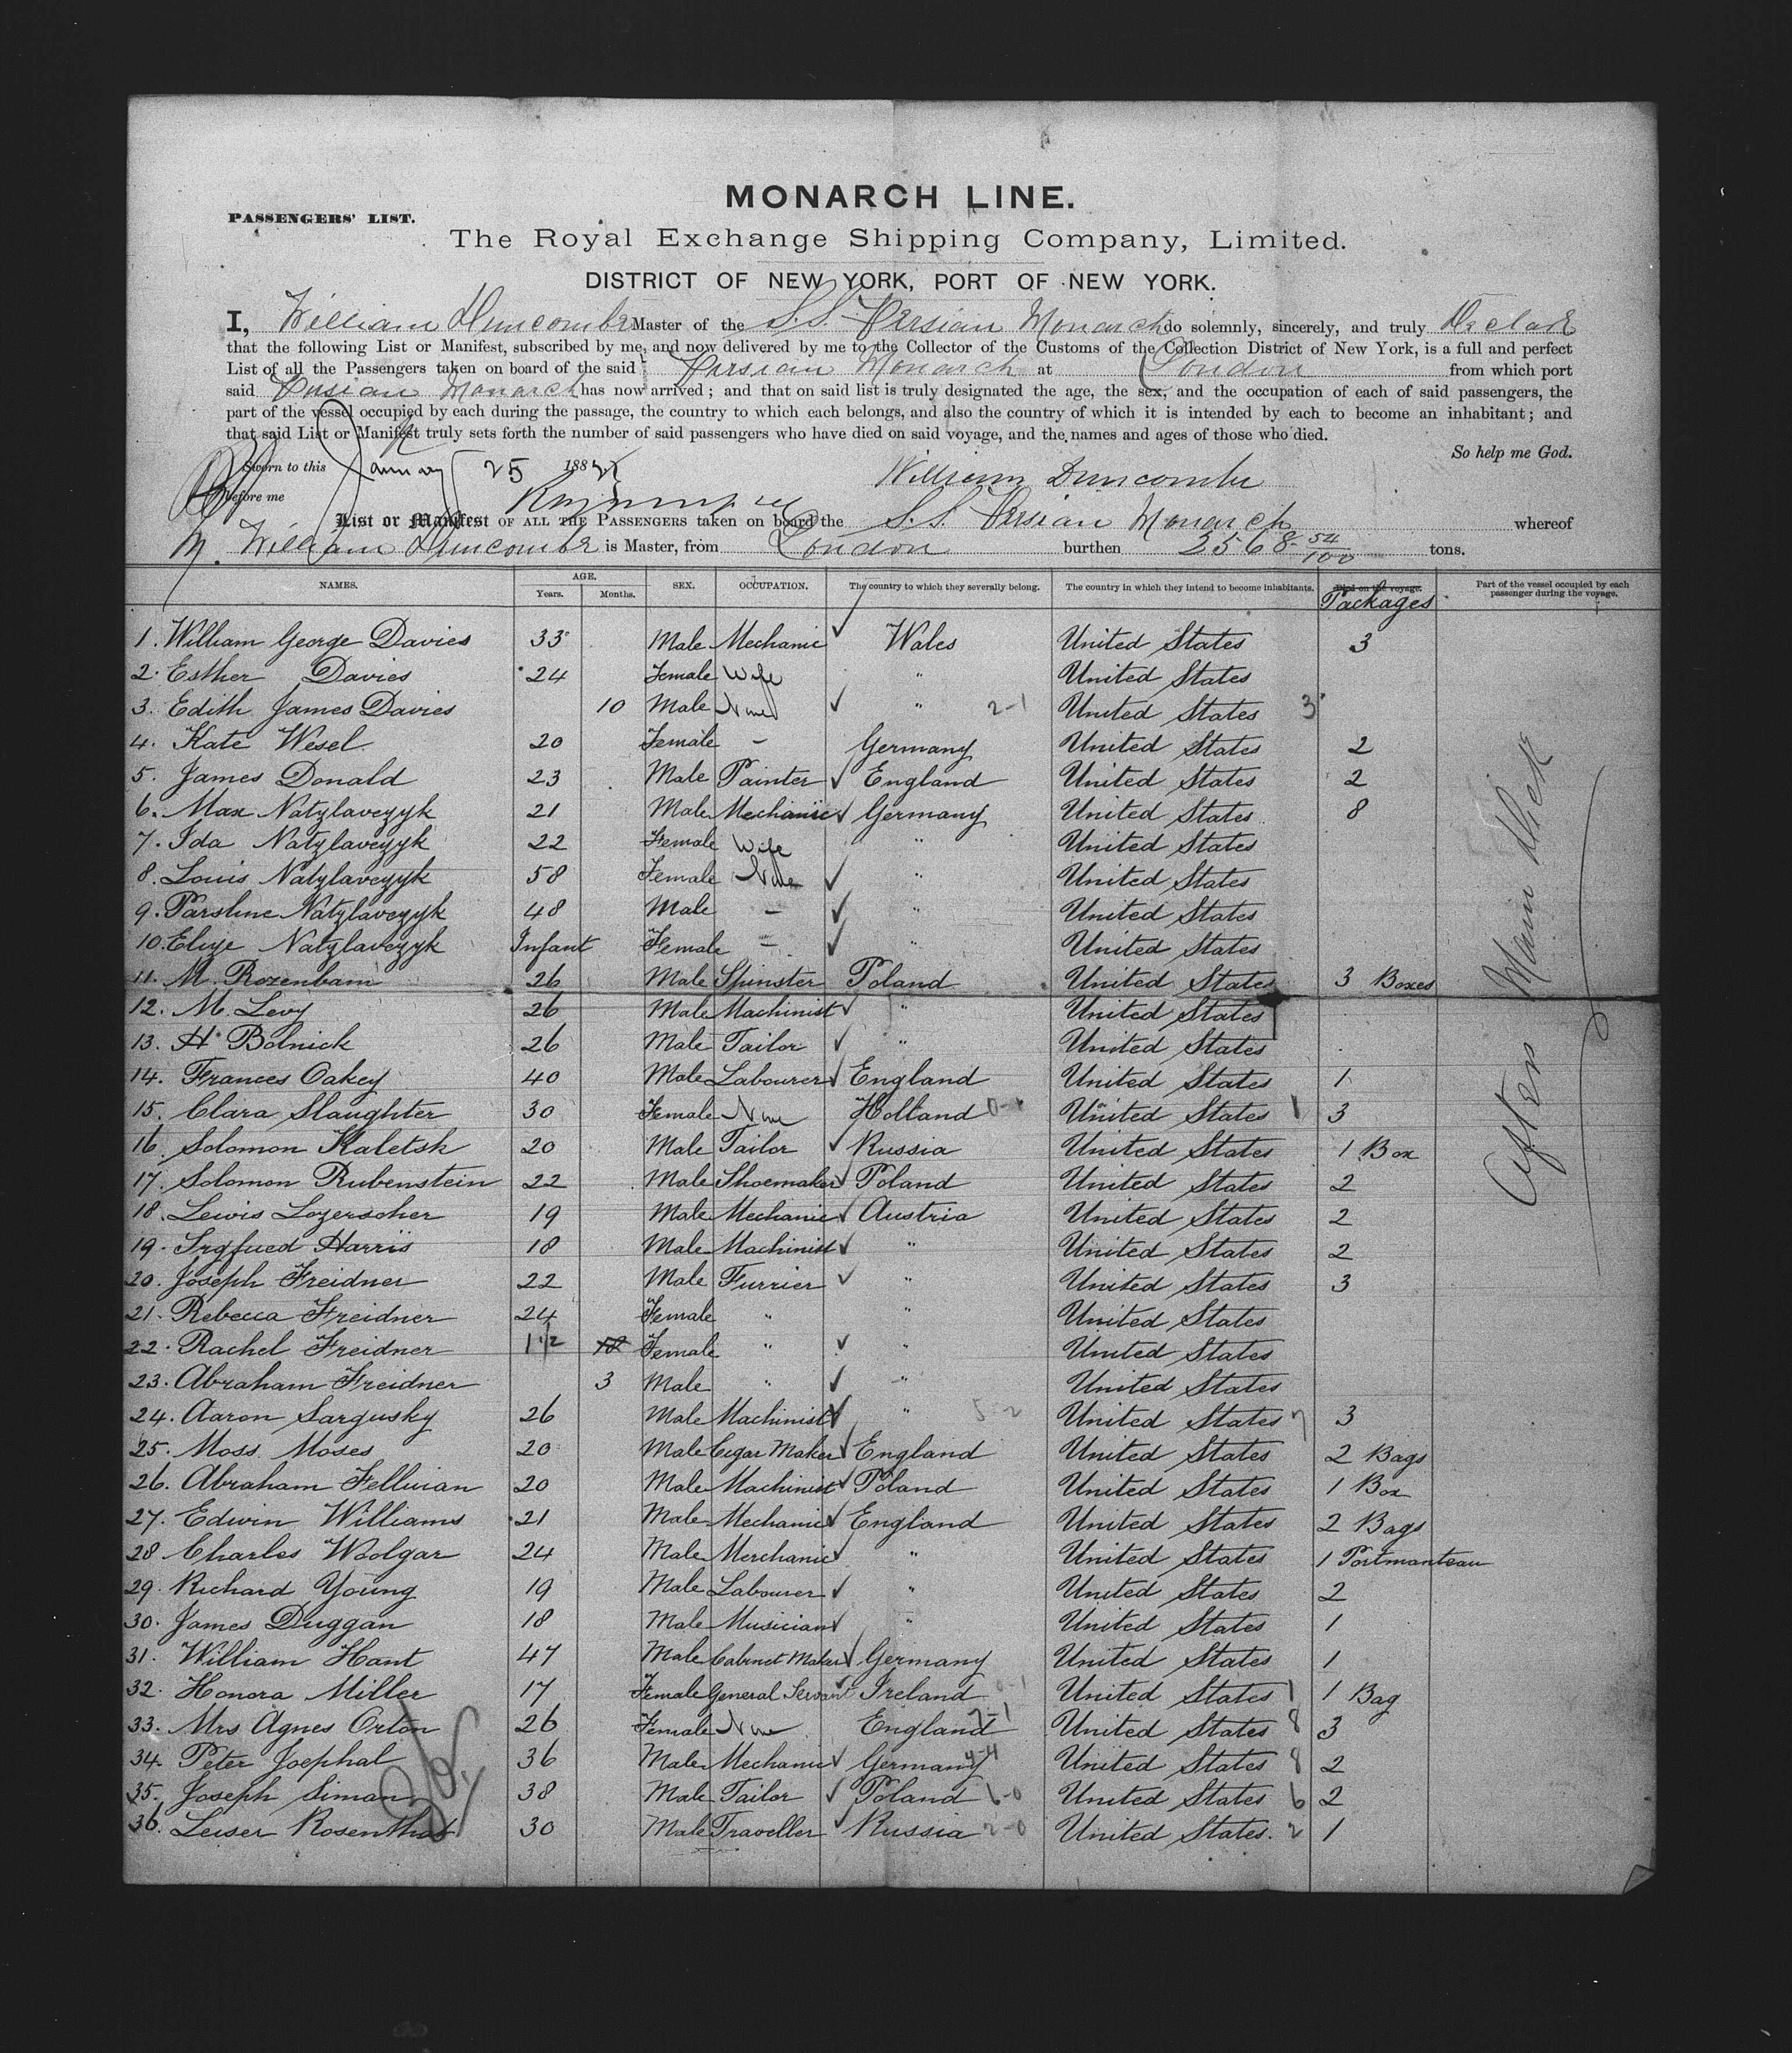 MONARCH LINE.
PASSENGERS' LIST.
The Royal Exchange Shipping Company, Limited.
DISTRICT OF NEW YORK, PORT OF NEW YORK.
I, William Duncombe Master of the S.S. Persian Monarch do solemnly, sincerely, and truly Declare
that the following List or Manifest, subscribed by me, and now delivered by me to the Collector of the Customs of the Collection District of New York, is a full and perfect
List of all the Passengers taken on board of the said Persian Monarch at London from which port
said Persian Monarch has now arrived; and that on said list is truly designated the age, the sex, and the occupation of each of said passengers, the
part of the vessel occupied by each during the passage, the country to which each belongs, and also the country of which it is intended by each to become an inhabitant; and
that said List or Manifest truly sets forth the number of said passengers who have died on said voyage, and the names and ages of those who died.
So help me God.
Sworn to this January 25 188
William Duncombe
Before me
List or Manifest OF ALL THE PASSENGERS taken on board the S.S. Persian Monarch whereof
M. William Duncombe is Master, from London burthen 2568 54/100 tons.
NAMES. AGE. Years. Months. SEX. OCCUPATION. The country to which they severally belong. The country in which they intend to become inhabitants. Died on the voyage. Packages Part of the vessel occupied by each passenger during the voyage.
1. William George Davies 33 Male Mechanic ✓ Wales United States 3
2. Esther Davies 24 Female Wife " United States
3. Edith James Davies 10 Male None ✓ " 2-1 United States 3
4. Kate Wesel 20 Female - Germany United States 2
5. James Donald 23 Male Painter ✓ England United States 2
6. Max Natzlavczyk 21 Male Mechanic ✓ Germany United States 8
7. Ida Natzlavczyk 22 Female Wife " United States
8. Louis Natzlavczyk 58 Female None ✓ " United States
9. Natzlavczyk 48 Male - ✓ " United States
10. Natzlavczyk Infant Female - ✓ " United States
11. M. Rozenbam 26 Male Spinster Poland United States 3 Boxes
12. M. Levy 26 Male Machinist ✓ " United States
13. H. Bolnick 26 Male Tailor ✓ " United States
14. Frances Oakey 40 Male Labourer ✓ England United States 1
15. Clara Slaughter 30 Female None Holland United States 1 3
16. Solomon Kaletsk 20 Male Tailor ✓ Russia United States 1 Box
17. Solomon Rubenstein 22 Male Shoemaker ✓ Poland United States 2
18. Lewis Lozerscher 19 Male Mechanic ✓ Austria United States 2
19. Harris 18 Male Machinist ✓ " United States 2
20. Joseph Freidner 22 Male Furrier ✓ " United States 3
21. Rebecca Freidner 24 Female " " United States
22. Rachel Freidner 1 1/2 Female " ✓ " United States
23. Abraham Freidner 3 Male " ✓ " United States
24. Aaron Sargusky 26 Male Machinist ✓ " 5-2 United States 7 3
25. Moss Moses 20 Male Cigar Maker ✓ England United States 2 Bags
26. Abraham Fellivian 20 Male Machinist ✓ Poland United States 1 Box
27. Edwin Williams 21 Male Mechanic ✓ England United States 2 Bags
28. Charles Woolgar 24 Male Merchanic ✓ " United States 1 Portmanteau
29. Richard Young 19 Male Labourer ✓ " United States 2
30. James Duggan 18 Male Musician ✓ " United States 1
31. William Hant 47 Male Cabinet Maker ✓ Germany United States 1
32. Honora Miller 17 Female General Servant Ireland 0-1 United States 1 1 Bag
33. Mrs Agnes Orton 26 Female None England 7-1 United States 8 3
34. Peter Joephal 36 Male Mechanic ✓ Germany 4-4 United States 8 2
35. Joseph Siman 38 Male Tailor ✓ Poland 6-0 United States 6 2
36. Leiser Rosenthal 30 Male Traveller ✓ Russia 2-0 United States. 2 1
After Main deck